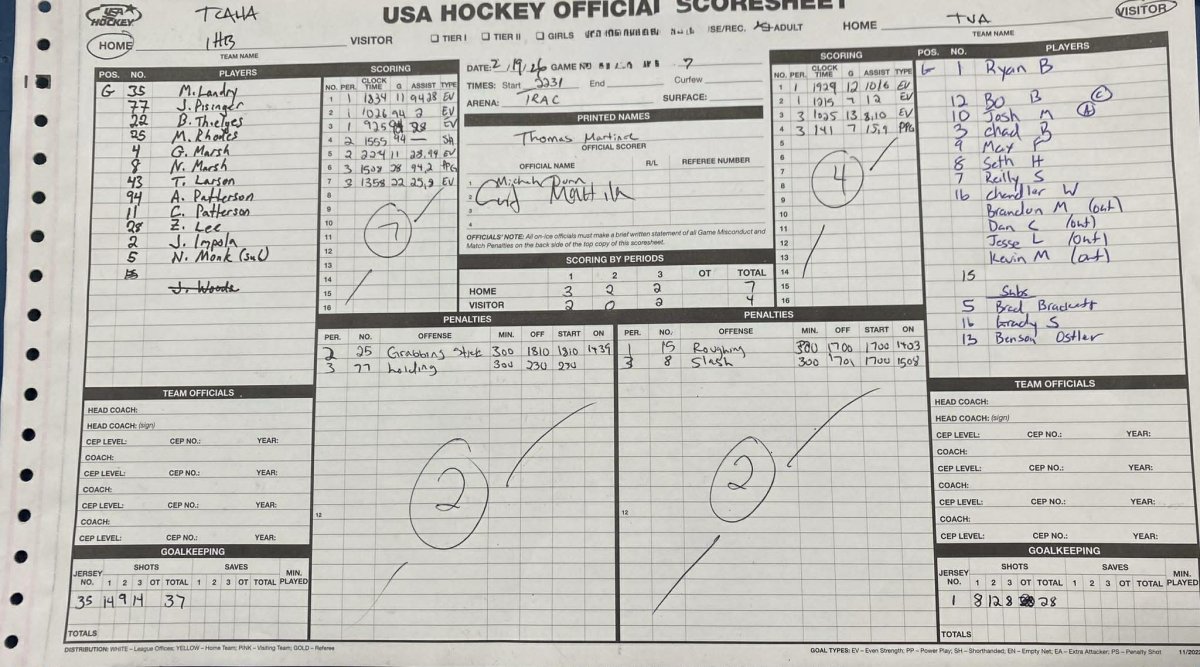 USA HOCKEY
TCAHA
USA HOCKEY OFFICIAL SCORESHEET
TVA
VISITOR
HOME
1HB
TEAM NAME
VISITOR
TIER I
TIER II
GIRLS
SE/REC.
ADULT
HOME
TEAM NAME
POS. NO. PLAYERS
G 35 M. Landry
77 J. Pisinger
22 B. Thielges
25 M. Rhodes
4 G. Marsh
8 N. Marsh
43 T. Larson
94 A. Patterson
11 C. Patterson
28 Z. Lee
2 J. Impola
5 N. Monk (sub)
J. Woods
SCORING
NO. PER. CLOCK TIME G ASSIST TYPE
1 1 1834 11 9428 EV
2 1 1026 94 2 EV
3 1 925 28 EV
4 2 1555 94 — SH
5 2 224 11 28.94 EV
6 3 1508 28 94,2 PPG
7 3 1358 22 25,8 EV
8
9
10
11
12
13
14
15
16
7
DATE: 2/19/26 GAME NO 7
TIMES: Start 2231 End Curfew
ARENA: IRAC SURFACE:
PRINTED NAMES
Thomas
OFFICIAL SCORER
OFFICIAL NAME R/L REFEREE NUMBER
1 Michele Dunn
2 Mattila
3
4
OFFICIALS' NOTE: All on-ice officials must make a brief written statement of all Game Misconduct and
Match Penalties on the back side of the top copy of this scoresheet.
SCORING BY PERIODS
1 2 3 OT TOTAL
HOME 3 2 2 7
VISITOR 2 0 2 4
SCORING
NO. PER. CLOCK TIME G ASSIST TYPE
1 1 1929 12 10/6 EV
2 1 1215 7 12 EV
3 3 1025 13 8,10 EV
4 3 141 7 15,9 PPG
5
6
7
8
9
10
11
12
13
14
15
16
4
POS. NO. PLAYERS
G 1 Ryan B
12 Bo B (C)
10 Josh M (A)
3 Chad B
9 Max F
8 Seth H
7 Reilly S
16 Chandler W
Brandon M (out)
Dan C (out)
Jesse L (out)
Kevin M (out)
15
Subs
5 Brad Brackett
16 Grady S
13 Benson Ostler
PENALTIES
PER. NO. OFFENSE MIN. OFF START ON
2 25 Grabbing Stick 300 1310 1310 1439
3 77 holding 300 230 230
12
2
PENALTIES
PER. NO. OFFENSE MIN. OFF START ON
1 15 Roughing 300 1700 1700 1403
3 8 Slash 300 1701 1700 1508
12
2
TEAM OFFICIALS
HEAD COACH:
HEAD COACH: (sign)
CEP LEVEL: CEP NO.: YEAR:
COACH:
CEP LEVEL: CEP NO.: YEAR:
COACH:
CEP LEVEL: CEP NO.: YEAR:
COACH:
CEP LEVEL: CEP NO.: YEAR:
GOALKEEPING
JERSEY NO. SHOTS 1 2 3 OT TOTAL SAVES 1 2 3 OT TOTAL MIN. PLAYED
35 14 9 14 37
TOTALS
TEAM OFFICIALS
HEAD COACH:
HEAD COACH: (sign)
CEP LEVEL: CEP NO.: YEAR:
COACH:
CEP LEVEL: CEP NO.: YEAR:
COACH:
CEP LEVEL: CEP NO.: YEAR:
COACH:
CEP LEVEL: CEP NO.: YEAR:
GOALKEEPING
JERSEY NO. SHOTS 1 2 3 OT TOTAL SAVES 1 2 3 OT TOTAL MIN. PLAYED
1 8 12 8 28
TOTALS
DISTRIBUTION: WHITE – League Offices; YELLOW – Home Team; PINK – Visiting Team; GOLD – Referee
GOAL TYPES: EV – Even Strength; PP – Power Play; SH – Shorthanded; EN – Empty Net; EA – Extra Attacker; PS – Penalty Shot